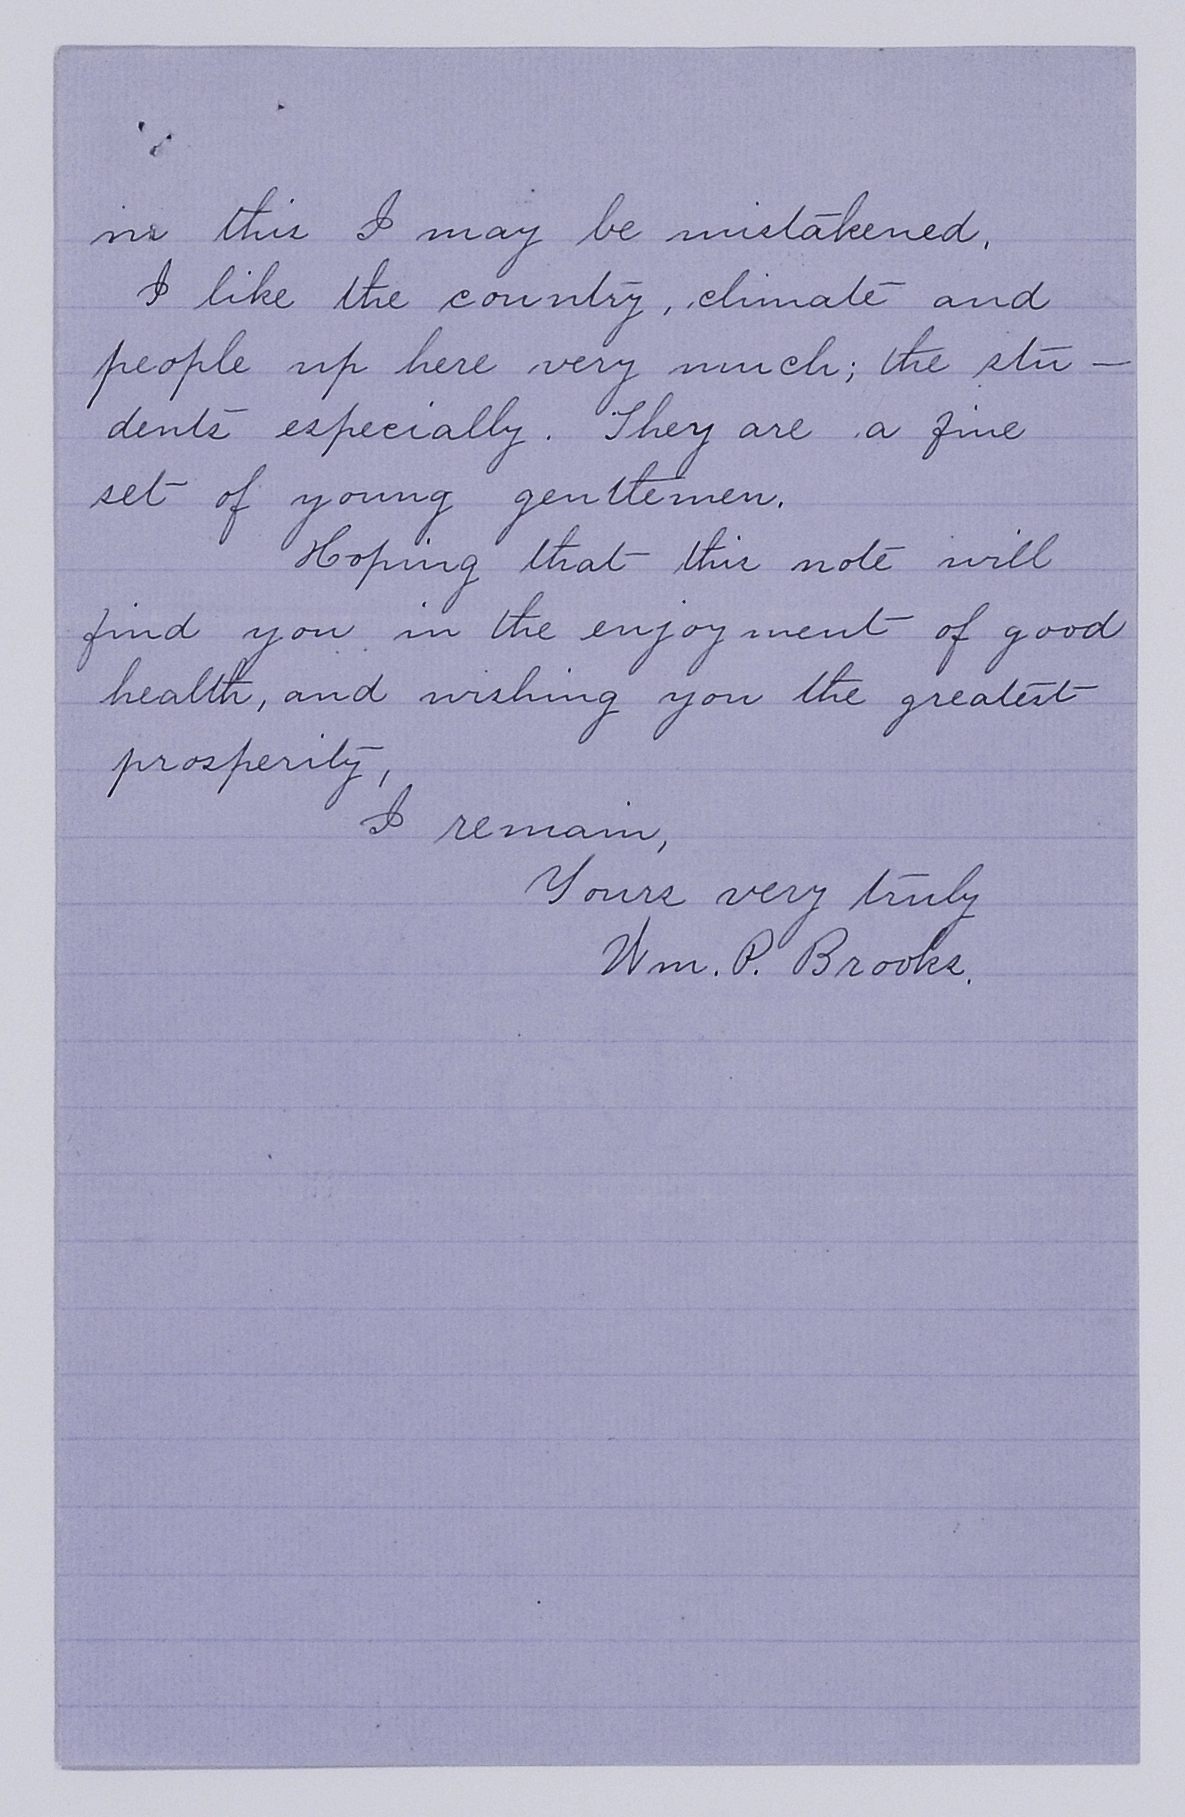 in this I may be mistakened.
I like the country, climate and
people up here very much; the stu—
dents especially. They are a fine
set of young gentlemen.
Hoping that this note will
find you in the enjoyment of good
health, and wishing you the greatest
prosperity,
I remain,
Yours very truly
Wm. P. Brooks.